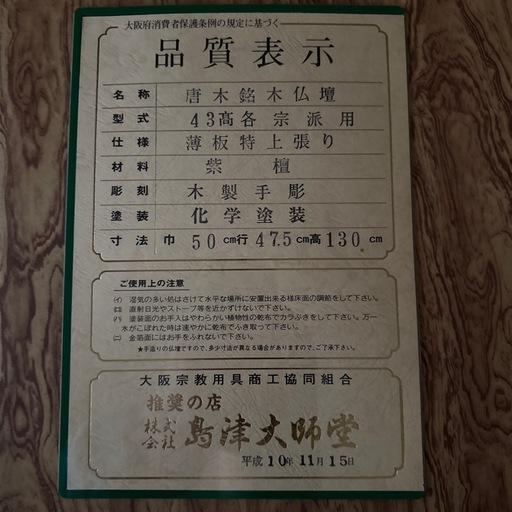 大阪府消費者保護条例の規定に基づく
品質表示
名称 唐木銘木仏壇
型式 43髙各宗派用
仕様 薄板特上張り
材料 紫檀
彫刻 木製手彫
塗装 化学塗装
寸法 巾50cm行47.5cm高130cm
ご使用上の注意
(イ) 湿気の多い処はさけて水平な場所に安置出来る様床面の調節をして下さい。
(ロ) 直射日光やストーブ等を近かずけないで下さい。
(ハ) 塗装面のお手入はやわらかい植物性の乾布でカラぶきをして下さい。万一
水がこぼれた時は速やかに乾布でふき取って下さい。
(ニ) 金箔面にはお手をふれないで下さい。
★手造りの仏壇ですので、多少寸法が異なる場合がありますので、ご了承下さい。
大阪宗教用具商工協同組合
推奨の店
株式会社 島津大師堂
平成10年11月15日